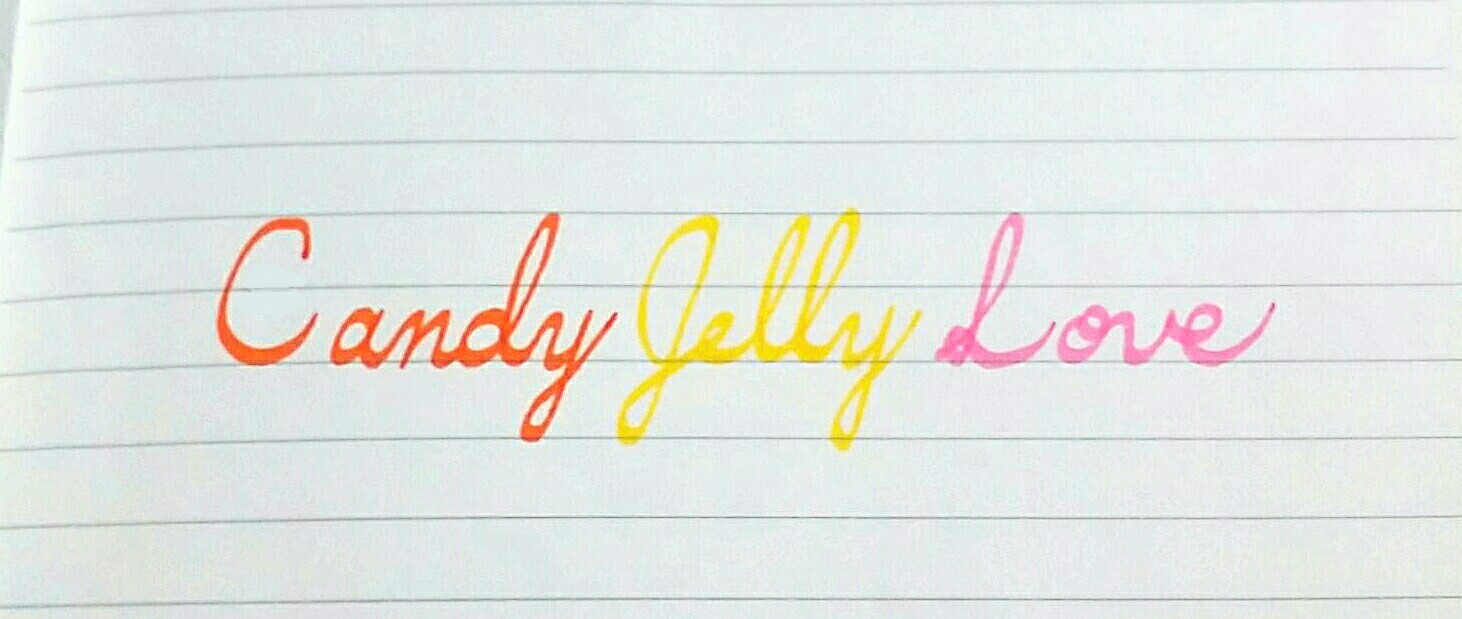 Candy Jelly Love